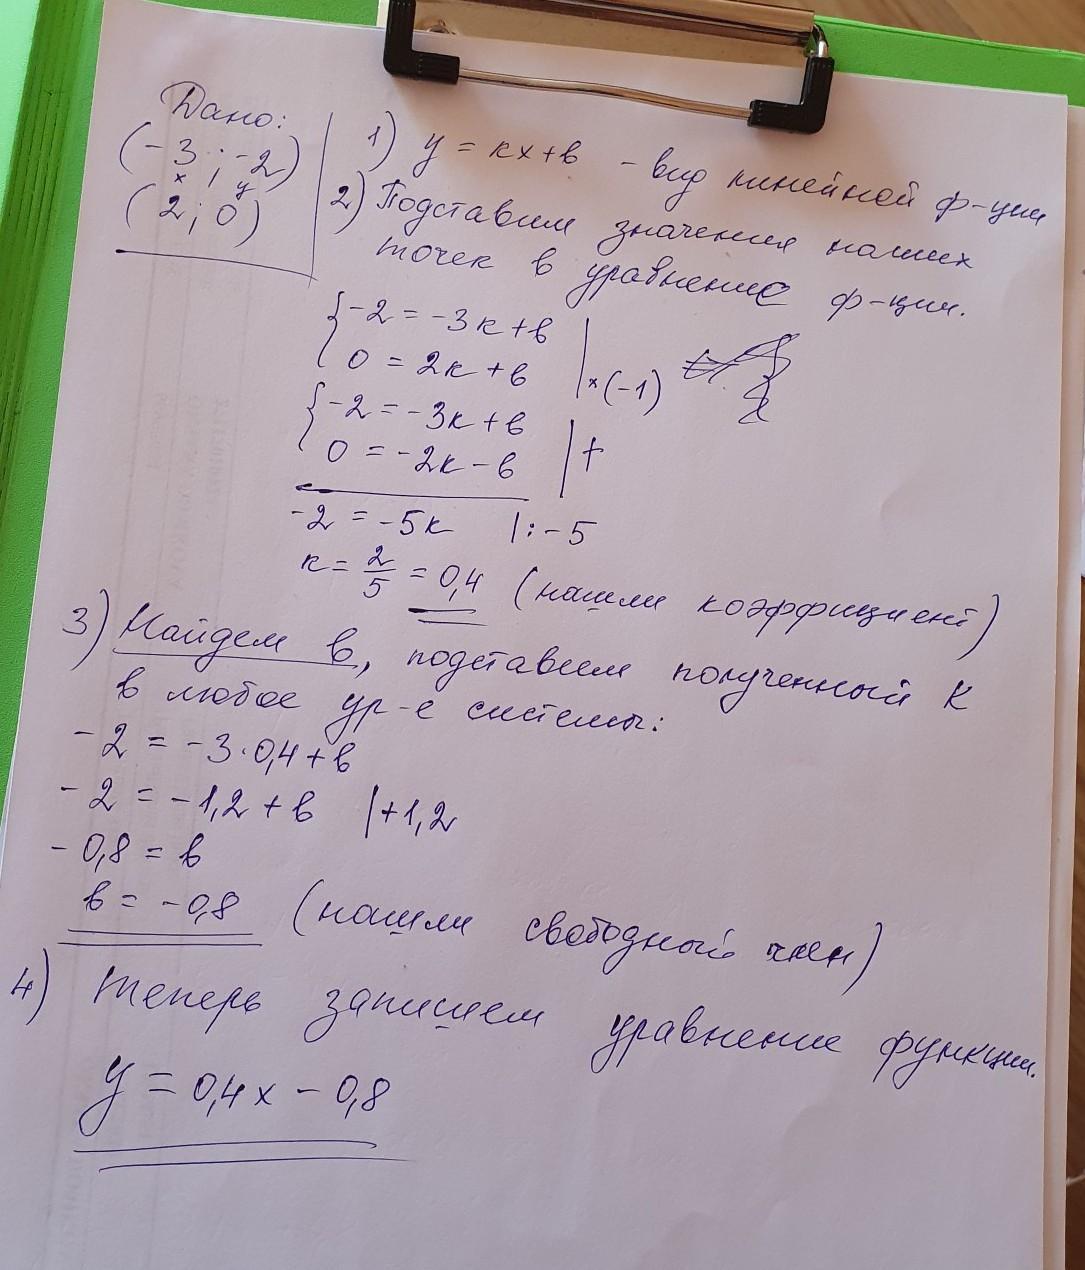 Дано:
(-3 ; -2)
x ; y
(2 ; 0)
1) y = kx + в - вид линейной ф-ции
2) Подставим значения наших
точек в уравнение ф-ции.
{ -2 = -3к + в
0 = 2к + в | × (-1)
{ -2 = -3к + в
0 = -2к - в | +
-2 = -5к | : -5
к = 2/5 = 0,4 (нашли коэффициент)
3) Найдем в, подставим полученный К
в любое ур-е системы:
-2 = -3·0,4 + в
-2 = -1,2 + в | +1,2
-0,8 = в
в = -0,8 (нашли свободный член)
4) Теперь запишем уравнение функции.
y = 0,4x - 0,8